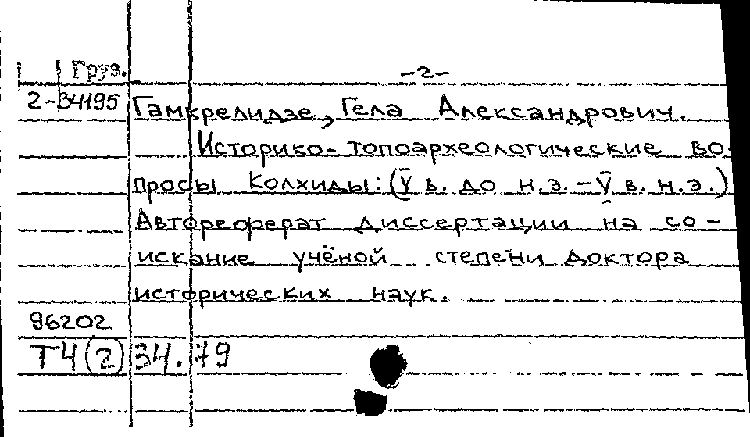 Груз. -2-
2-34195 Гамкрелидзе, Гела Александрович.
Историко-топоархеологические во-
просы Колхиды: (V в. до н.э. - V в. н.э.)
Автореферат диссертации на со-
искание учёной степени доктора
исторических наук.
96202
Т4(2)34.79